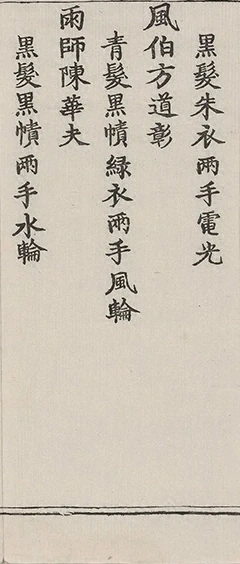 黒髮朱衣兩手電光
風伯方道彰
青髮黒幘緑衣兩手風輪
雨師陳華夫
黒髮黒幘兩手水輪